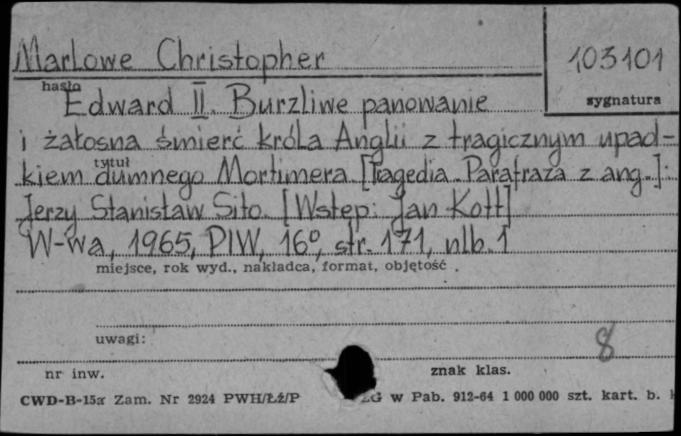 Marlowe Christopher
103101
hasło
sygnatura
Edward II. Burzliwe panowanie
i żałosna śmierć króla Anglii z tragicznym upad-
tytuł
kiem dumnego Mortimera [Tragedia. Parafraza z ang.]:
Jerzy Stanisław Sito. [Wstęp: Jan Kott]
W-wa, 1965, PIW, 16°, str. 171, nlb. 1
miejsce, rok wyd., nakładca, format, objętość.
uwagi:
8
nr inw.
znak klas.
CWD-B-15a Zam. Nr 2924 PWH/Łź/P ZG w Pab. 912-64 1 000 000 szt. kart. b.